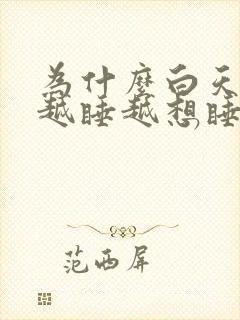 为什麽白天
越睡越想睡,
范西屏